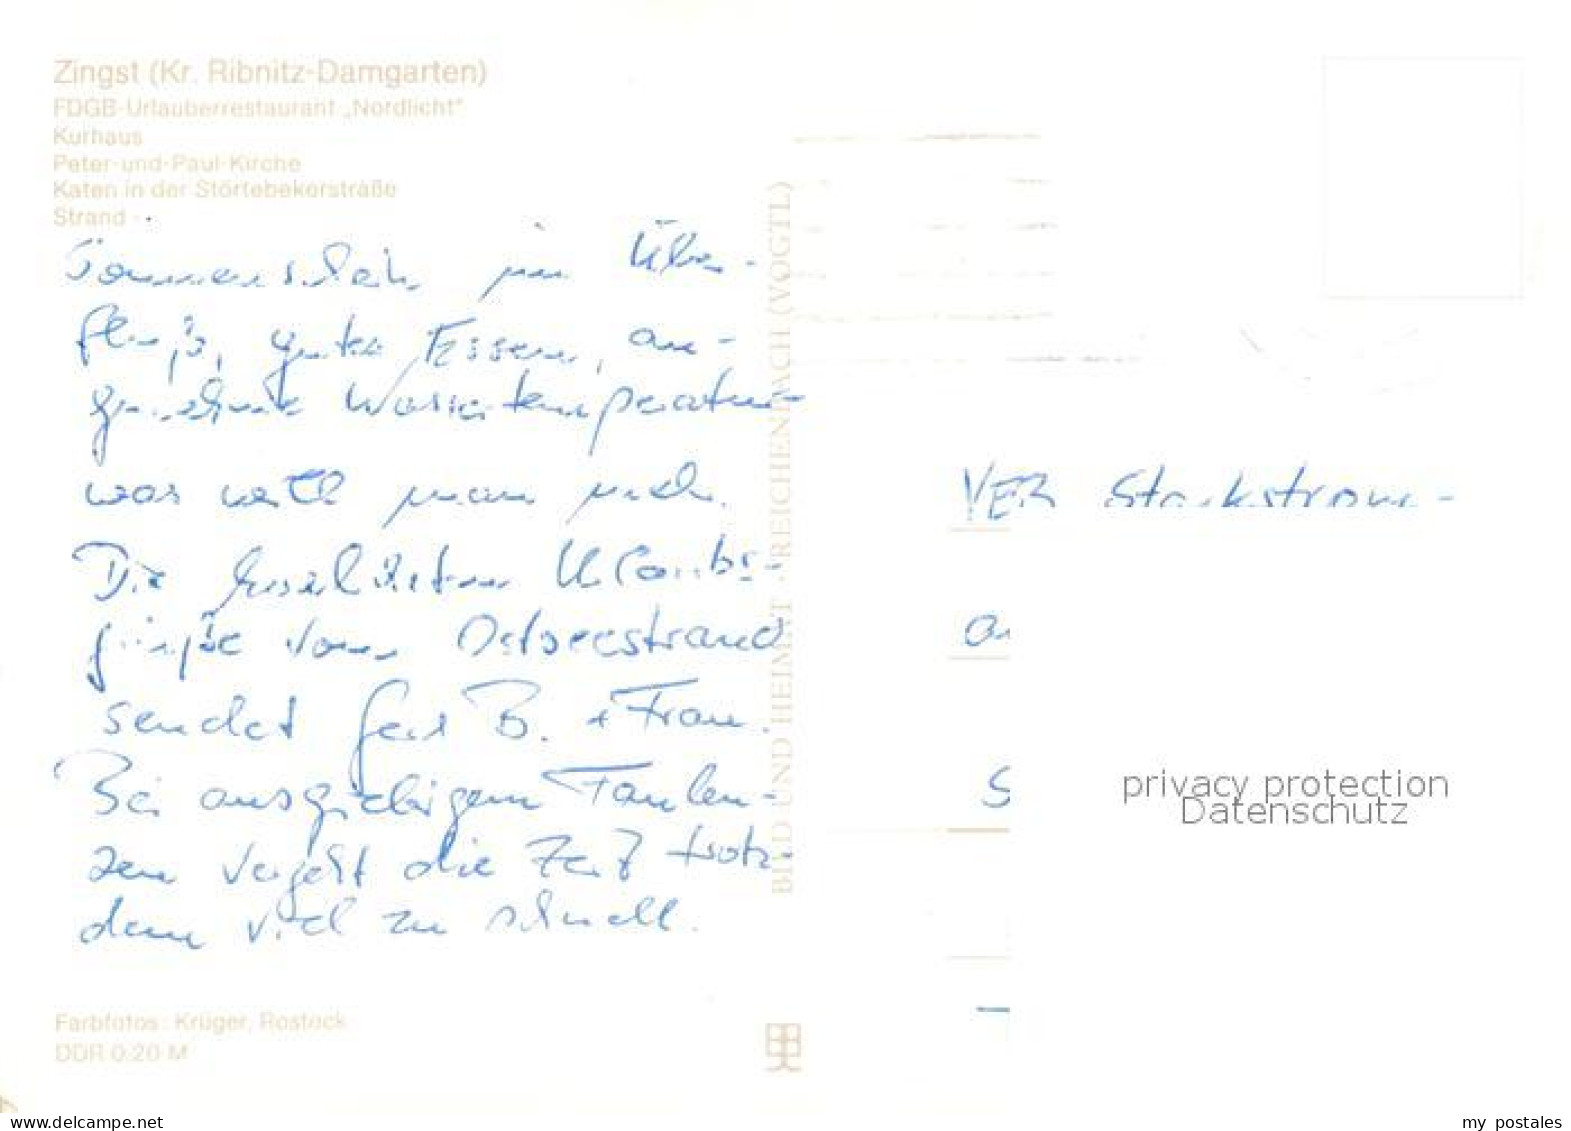 Zingst (Kr. Ribnitz-Damgarten)
FDGB-Urlauberrestaurant „Nordlicht"
Kurhaus
Peter-und-Paul-Kirche
Katen in der Störtebekerstraße
Strand
Sonnenschein im Über-
fluß, gutes Essen, an-
genehme Wassertemperatur
was will man mehr.
Die herzlichsten Urlaubs-
grüße vom Ostseestrand
sendet B. + Frau.
Bei ausgiebigem Faulen-
zen vergeht die Zeit trotz-
dem viel zu schnell.
Farbfotos: Krüger, Rostock
DDR 0.20 M
BILD UND HEIMAT REICHENBACH (VOGTL)
VEB Starkstrom-
S
privacy protection
Datenschutz
www.delcampe.net
my_postales